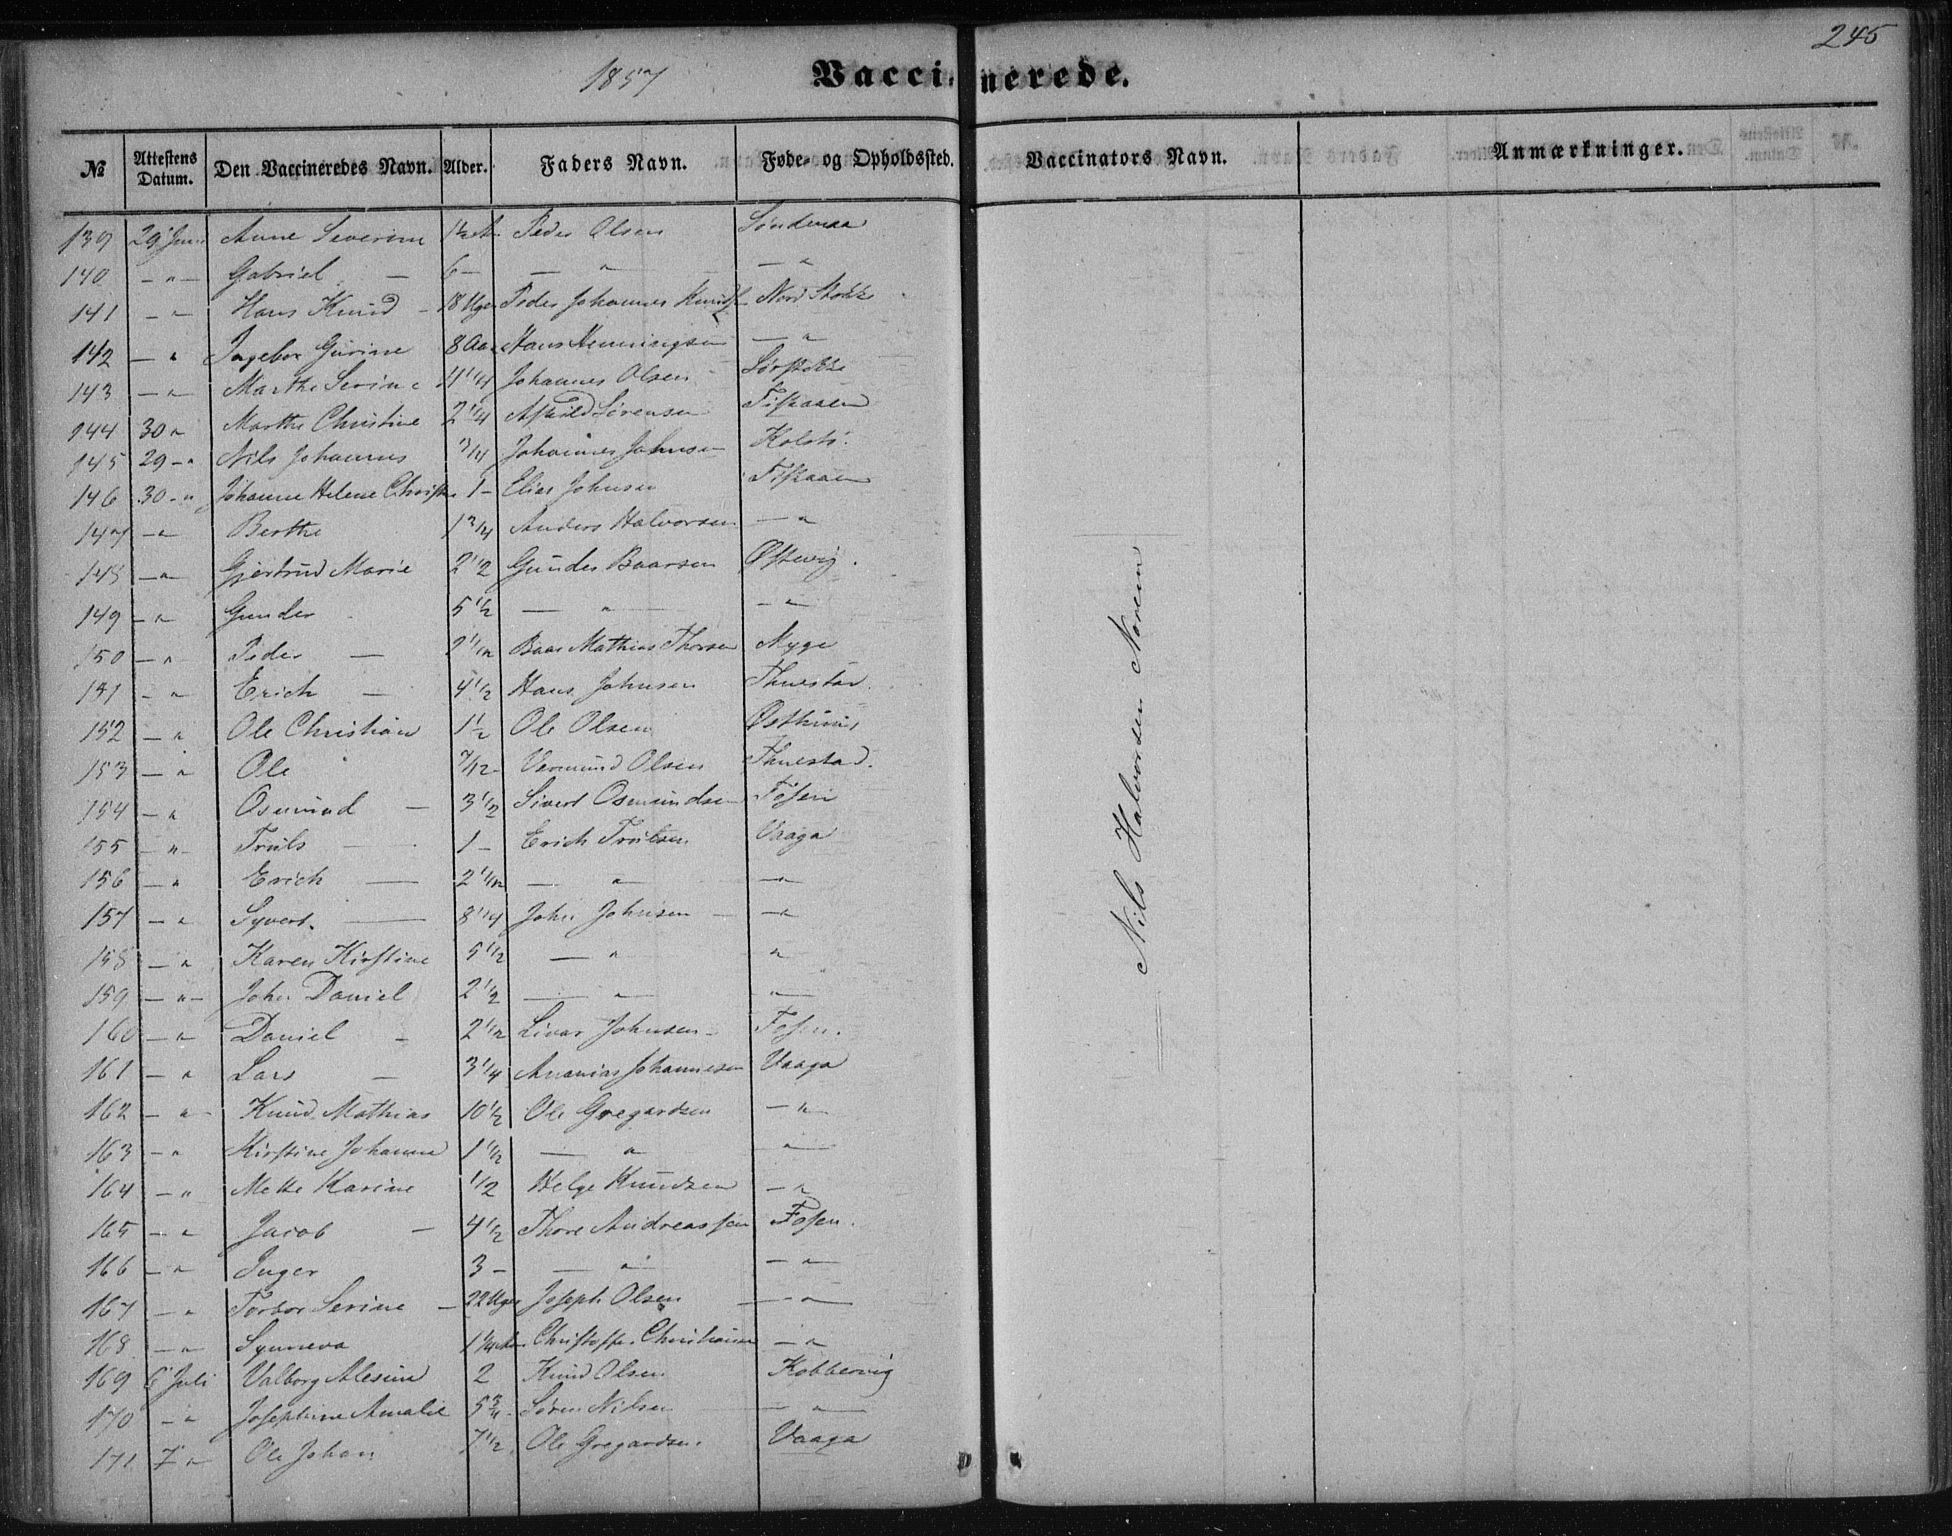 245
1857 Vaccinerede.
№ Attestens Datum. Den Vaccineredes Navn. Alder. Faders Navn. Føde- og Opholdssted. Vaccinators Navn. Anmærkninger.
139 29 Juni Anne Severine 1½ Peder Olsen
140 — " — Gabriel — 6 — — " — — "
141 — " Hans Knud — 18 Uger Peder Johannes Nord Stokke
142 — " Ingebor Gurine 8 Aar Hans Henningsen — " —
143 — " — Marthe Serine 4 1/4 Johannes Olsen Sørstokke
144 30 " Marthe Christine 2 1/4 Askild Sørensen Fiskaaen
145 29 — " Nils Johannes 3/4 Johannes Johnsen Kolstø.
146 30 — " Johanne Helene Christ. 1 — Elias Johnsen Fiskaaen
147 — " — Berthe 1 3/4 Anders Halvorsen — "
148 — " — Gjertrud Marie 2 1/2 Gunder Baarsen Østevig.
149 — " — Gunder 5 1/2 — " — — " —
150 — " Peder — 2 1/12 Baar Mathias Thorsen Myge
151 — " Erich — 4 1/2 Hans Johnsen Thuestad.
152 — " Ole Christian 1 1/2 Ole Olsen Østhuus
153 — " Ole 7/12 — Vermund Olsen Thuestad.
154 — " Osmund — 3 1/2 Sivert Osmundsen Fosen
155 — " — Truls — 1 — Erich Trulsen Vaaga
156 — " Erich — 2 1/12 — " — — " —
157 — " Syvert. — 8 1/4 John Johnsen — — " —
158 — " Karen Kirstine 5 1/2 — " "
159 — " — John Daniel 2 1/2 — " — — " —
160 — " — Daniel — 2 1/12 Livar Johnsen — Fosen.
161 — " Lars — 3 1/4 Ananias Johannesen Vaaga
162 — " — Knud Mathias 10 1/2 Ole Gregardsen — " —
163 — " Kirstine Johanne 1 1/2 — " — " —
164 — " Mette Karine 1/2 Helge Knudsen — "
165 — " Jacob — 4 1/2 Thore Andreassen Fosen.
166 — " Inger 3 — — " — — " —
167 — " Torbor Serine — 22 Uger Joseph Olsen — " —
168 — " Synneva 1 1/4 Christoffer Christiansen — "
169 6 Juli Valborg Alesine 2 Knud Olsen Kobbervig
170 — " Josephine Amalie 5 3/4. Søren Nilsen — " —
171 7 " Ole Johan 7 1/2. Ole Gregardsen. Vaaga
Nils Halvorsen Noren